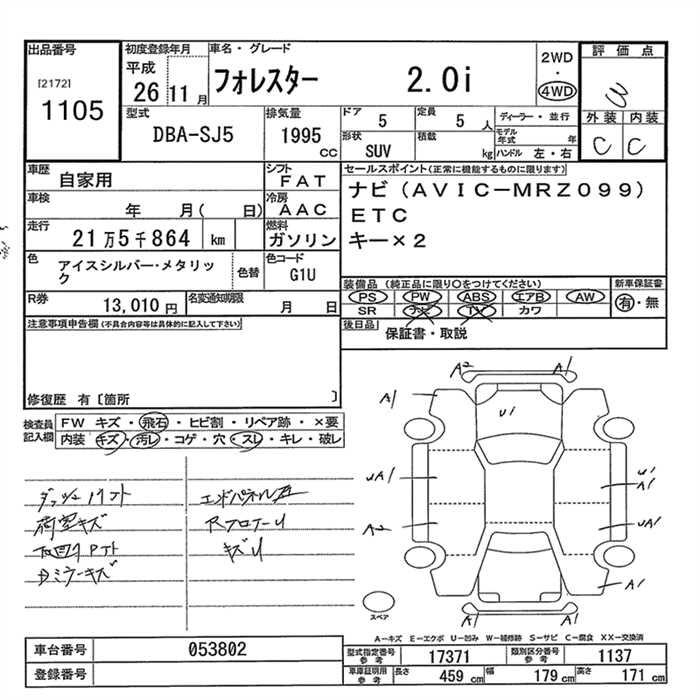 出品番号
[2172]
1105
初度登録年月
平成
26 11 月
車名・グレード
フォレスター 2.0i
2WD
・
4WD
評価点
3
外装 内装
C C
型式
DBA-SJ5
排気量
1995
CC
ドア
5
定員
5 人
ディーラー・並行
形状
SUV
積載
kg
モデル年式 年
ハンドル 左・右
車歴
自家用
シフト
FAT
車検
年 月( 日)
冷房
AAC
走行
21万5千864 km
燃料
ガソリン
色
アイスシルバー・メタリック
色替
色コード
G1U
R券
13,010 円
名変通知期限
月 日
セールスポイント(正常に機能するものに限ります)
ナビ(AVIC-MRZ099)
ETC
キー×2
装備品(純正品に限り○をつけてください)
新車保証書
PS PW ABS エアB AW
有・無
SR ナビ TV カワ
後日品
保証書・取説
注意事項申告欄(不具合内容等は具体的に記入して下さい)
修復歴 有〔箇所 〕
検査員記入欄
FW キズ・飛石・ヒビ割・リペア跡・×要
内装 キズ・汚レ・コゲ・穴・スレ・キレ・破レ
荷室キズ
キズU
A2 A1
A1
U1
A1
UA1
U1
A1
A2
UA1
A1
A1 A1
スペア
A−キズ E−エクボ U−凹み W−補修跡 S−サビ C−腐食 XX−交換済
車台番号
053802
登録番号
型式指定番号
参考
17371
類別区分番号
参考
1137
車庫証明用
参考
長さ 459 cm 幅 179 cm 高さ 171 cm